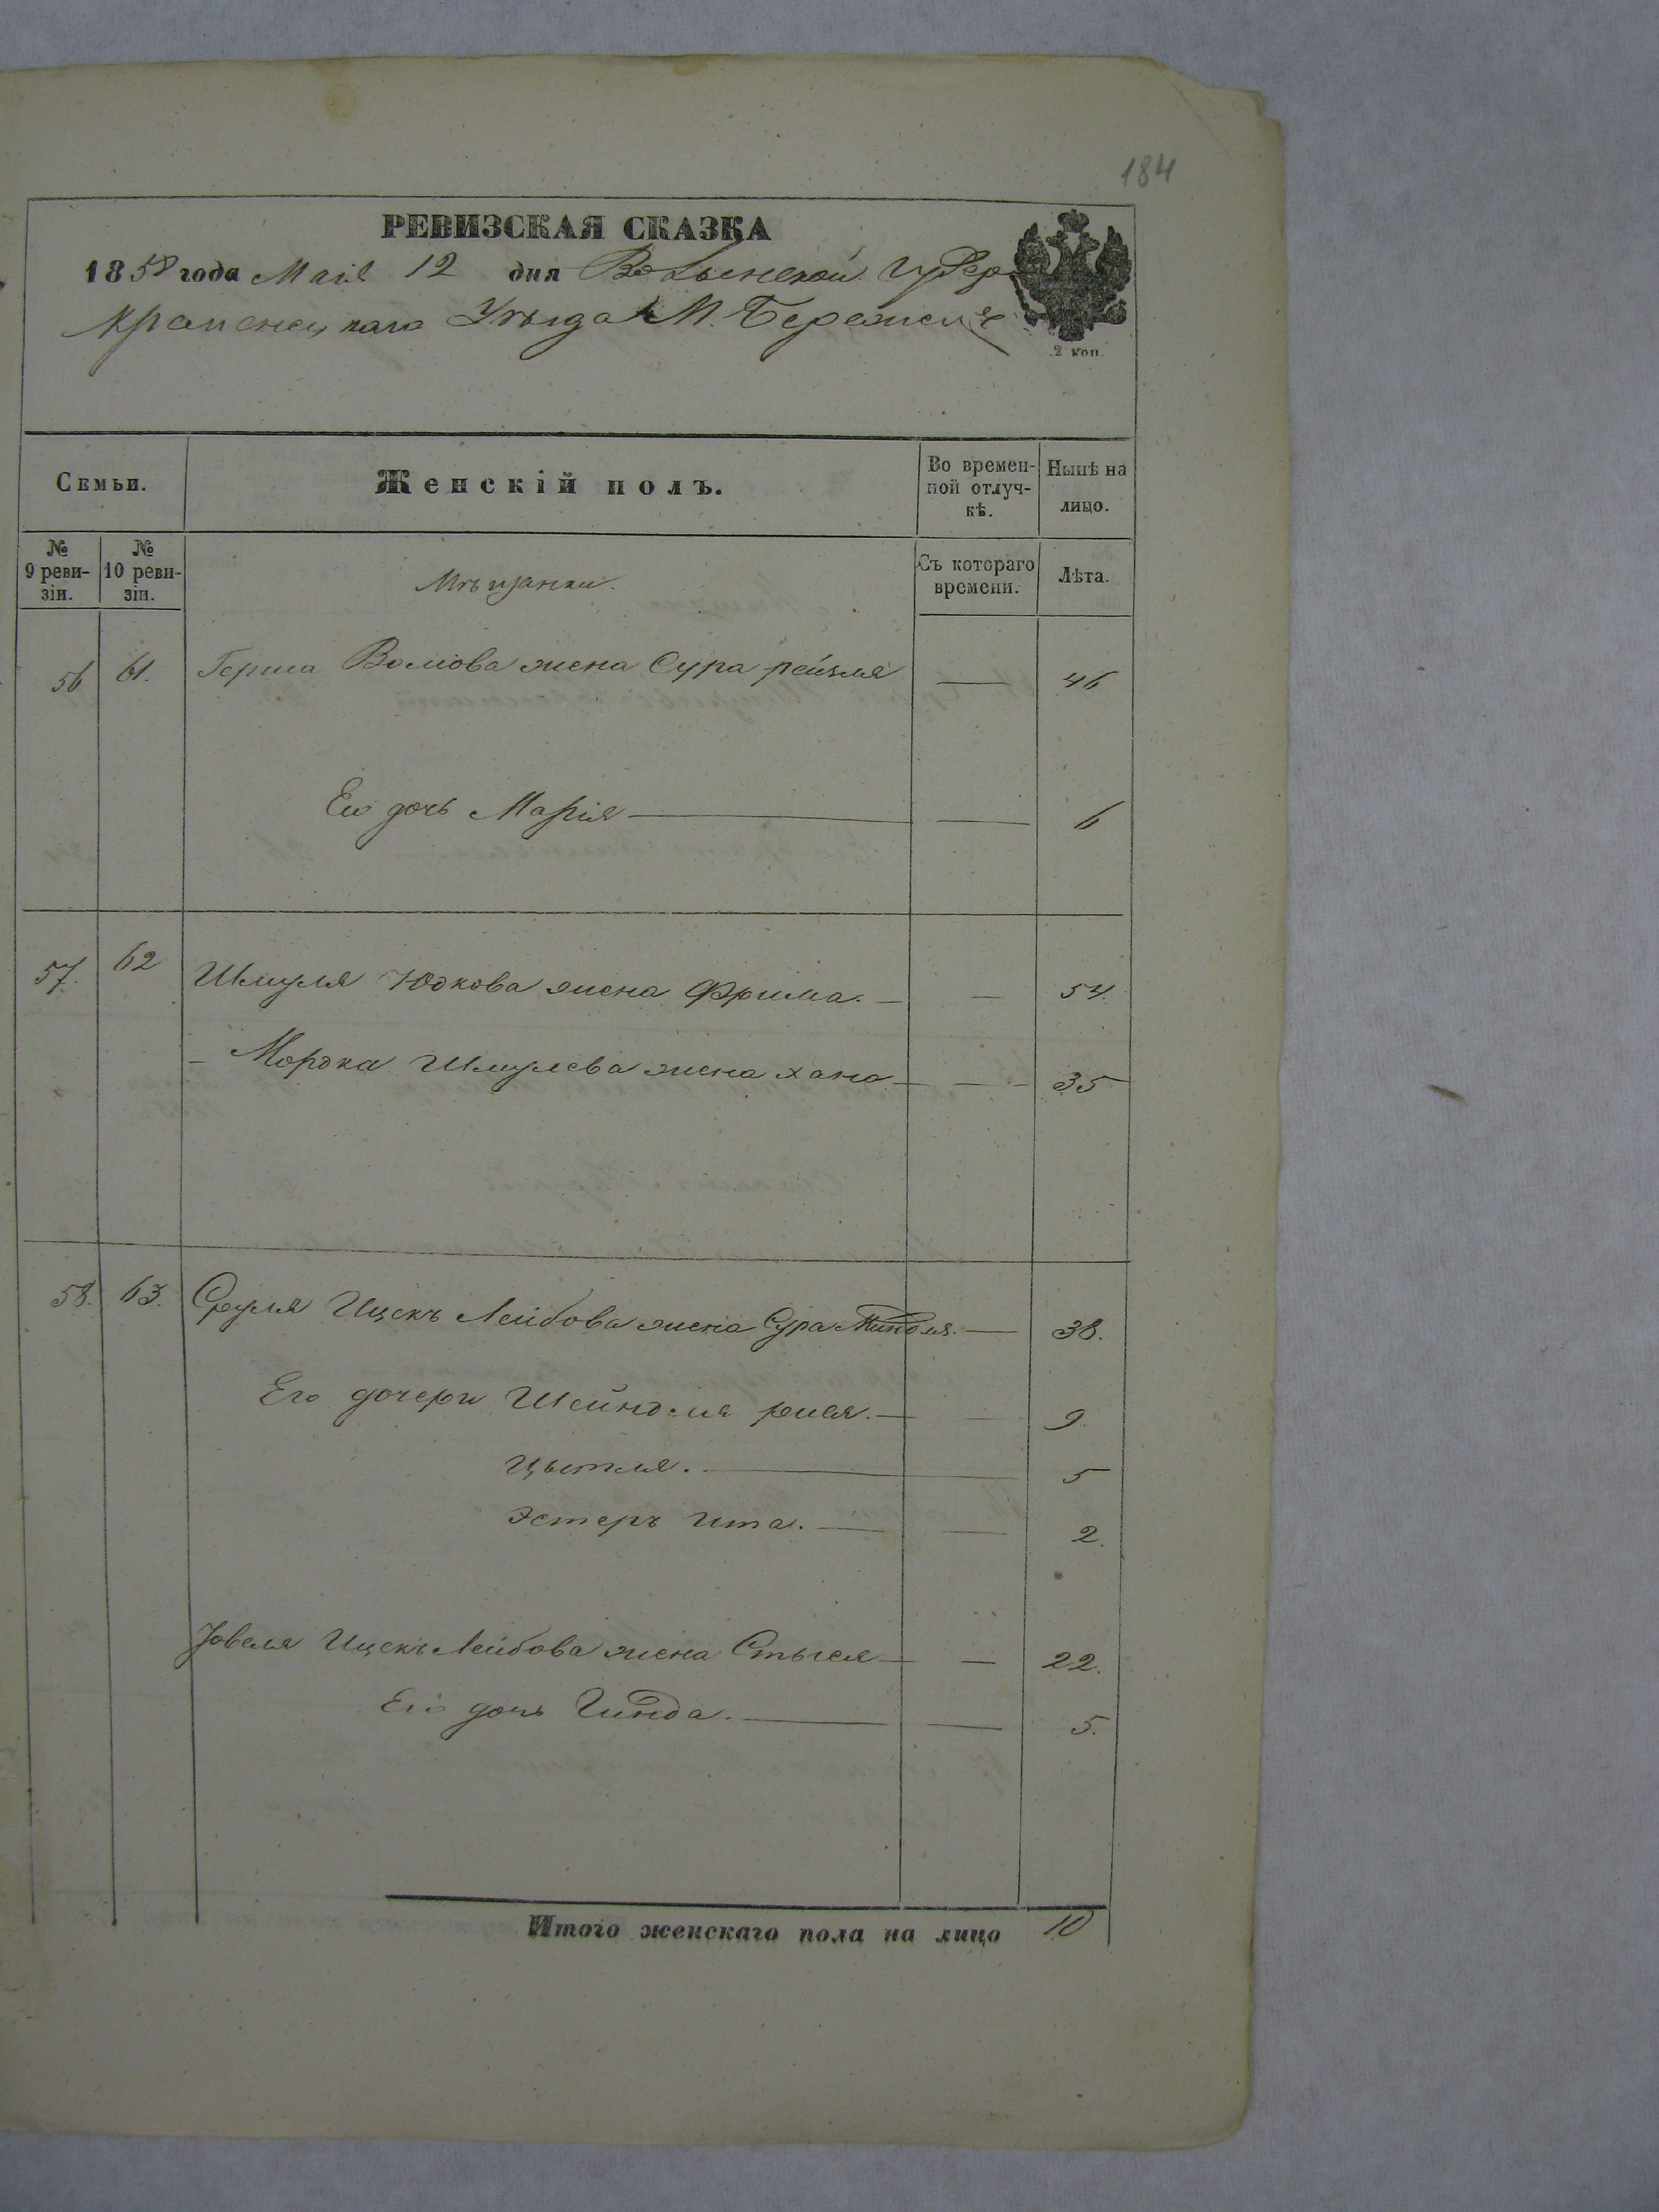 184
РЕВИЗСКАЯ СКАЗКА
1858 года Маія 12 дня Волынской Губер
Кременецкаго Уѣзда М. Бережец
2 коп.
Семьи.
Женскій полъ.
Во времен-
ной отлуч-
кѣ.
Нынѣ на
лицо.
№
9 реви-
зіи.
№
10 реви-
зіи.
Мѣщанки.
Съ котораго
времени.
Лѣта.
56 61. Герша Воліова жена Сура рейзля — 46
Его дочь Марія — — 6
57. 62 Шмуля Юдкова жена Фрима. — — 54.
- Мордка Шмулева жена хана — — 35
58. 63. Сруля Ицекъ Лейбова жена Сура Миндля. — 38.
Его дочери Шейндля ривя. — — 9.
Цытля. — 5
Эстеръ ита. — — 2.
Іовеля Ицекъ Лейбова жена Стыся — — 22.
Его дочь Гинда. — — 5.
Итого женскаго пола на лицо 10